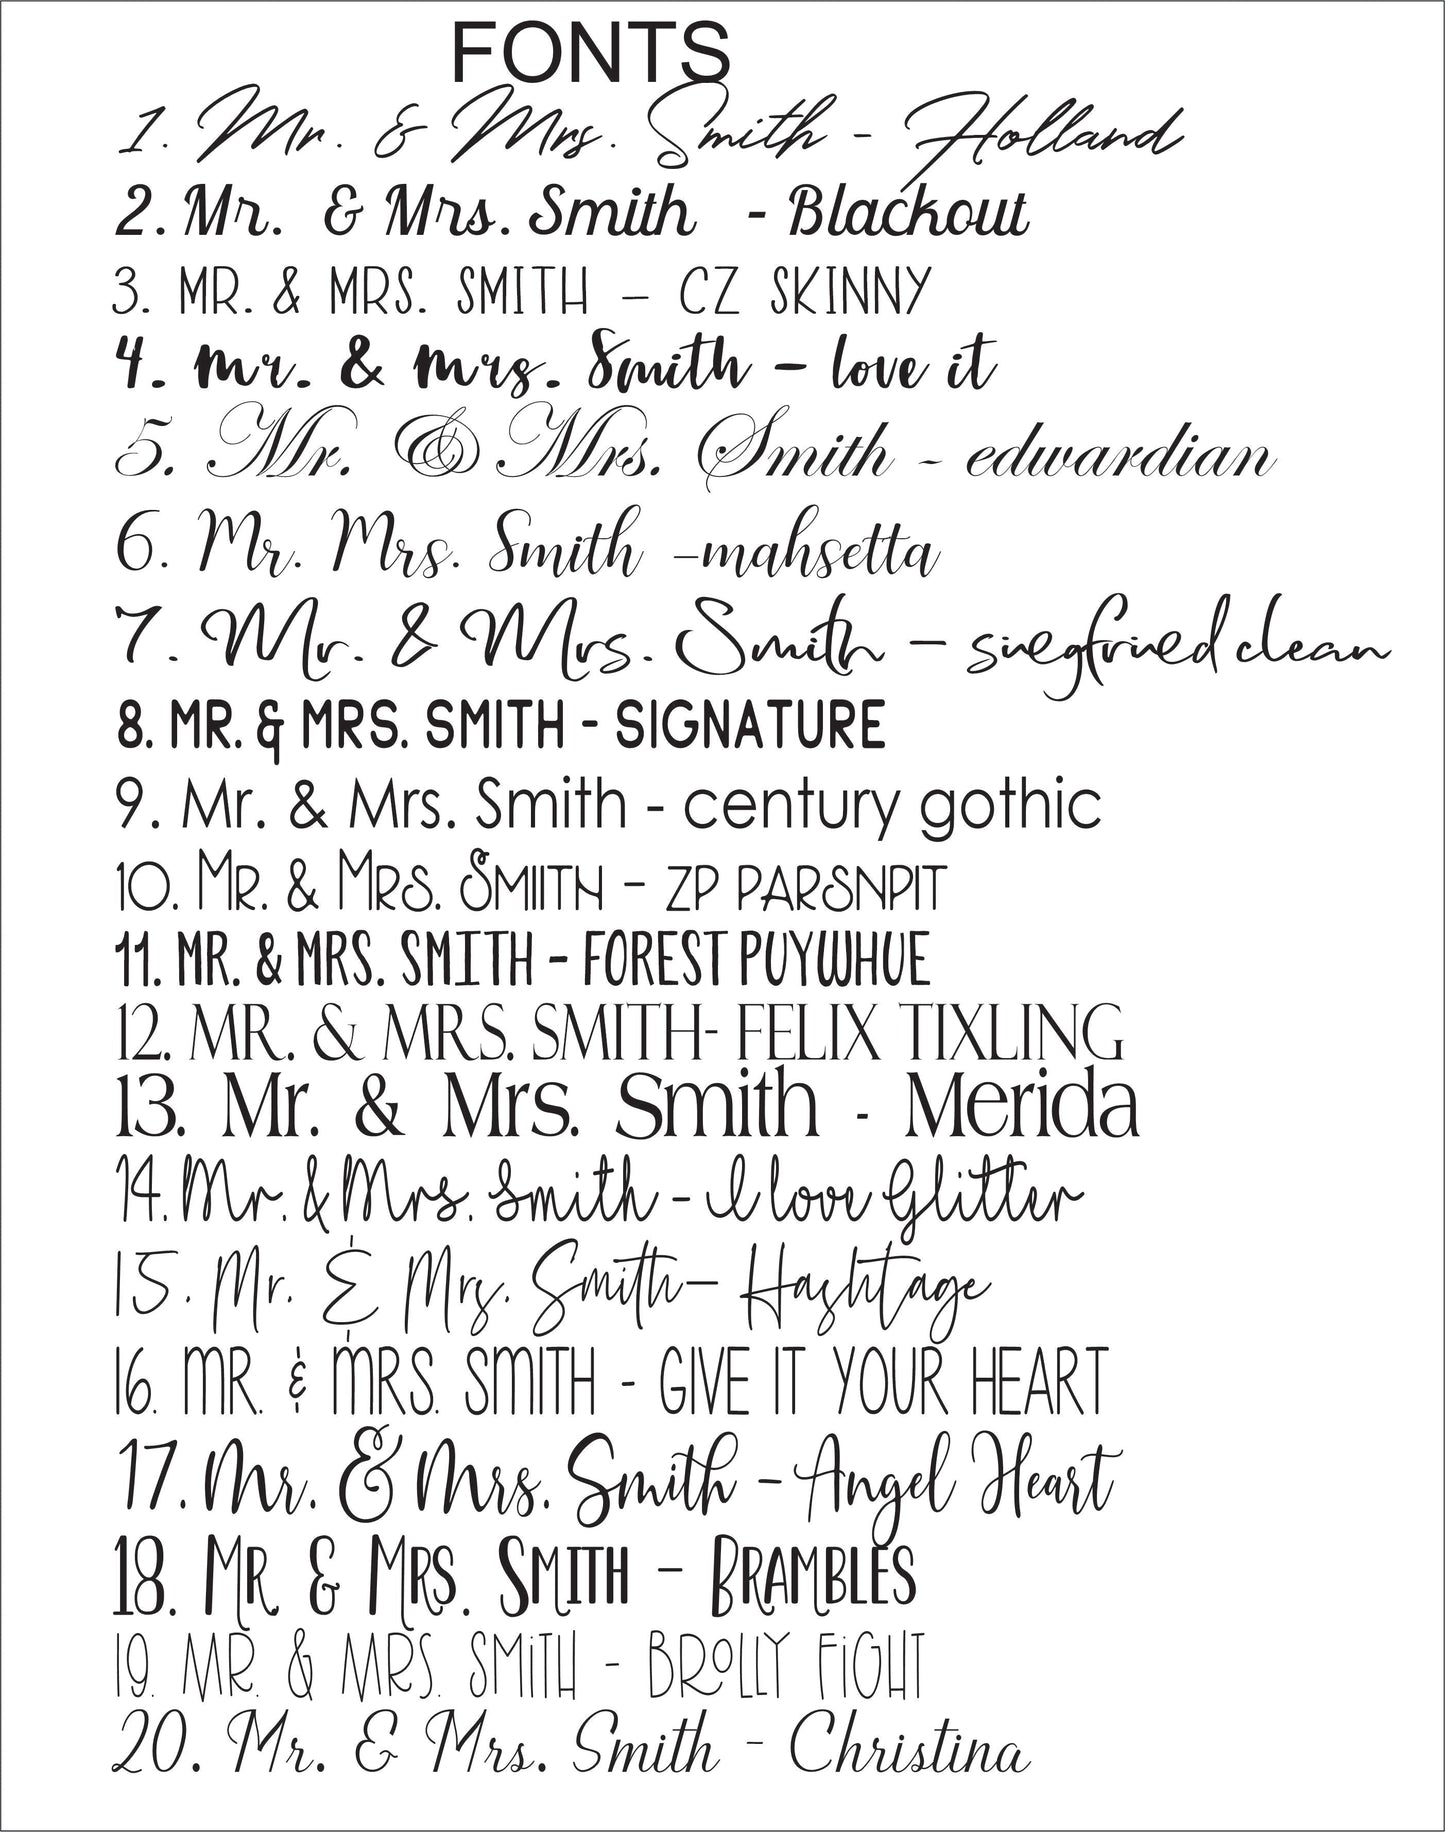 FONTS
1. Mr. & Mrs. Smith - Holland
2. Mr. & Mrs. Smith - Blackout
3. MR. & MRS. SMITH - CZ SKINNY
4. mr. & mrs. Smith - love it
5. Mr. & Mrs. Smith - edwardian
6. Mr. Mrs. Smith -mahsetta
7. Mr. & Mrs. Smith - siegfried clean
8. MR. & MRS. SMITH - SIGNATURE
9. Mr. & Mrs. Smith - century gothic
10. MR. & MRS. SMIITH - ZP PARSNPIT
11. MR. & MRS. SMITH - FOREST PUYWHUE
12. MR. & MRS. SMITH- FELIX TIXLING
13. Mr. & Mrs. Smith - Merida
14. Mr. & Mrs. Smith - I love Glitter
15. Mr. & Mrs. Smith- Hashtage
16. MR. & MRS. SMITH - GIVE IT YOUR HEART
17. Mr. & Mrs. Smith - Angel Heart
18. MR. & MRS. SMITH - BRAMBLES
19. MR. & MRS. SMiTH - BROLLY FiGHT
20. Mr. & Mrs. Smith - Christina